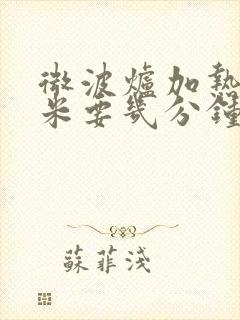 微波爐加熱
米要幾分鐘
蘇菲淺